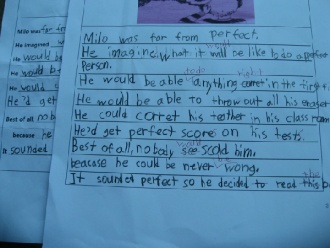 Milo was far from perfect.
He imagine what it would will be like to do a perfect
Person.
He would be able anything corret in the first
He would be able to throw out all his eraser
He could corret his teather in his class room
He'd get perfect score on his tests.
Best of all, nobady would see scold him,
beacase he could be never wong.
It sounded perfect so he decided to read this
Milo was far from
He imagined
He would be
He would be
He would
He'd get
Best of all nob
because he
It sounded